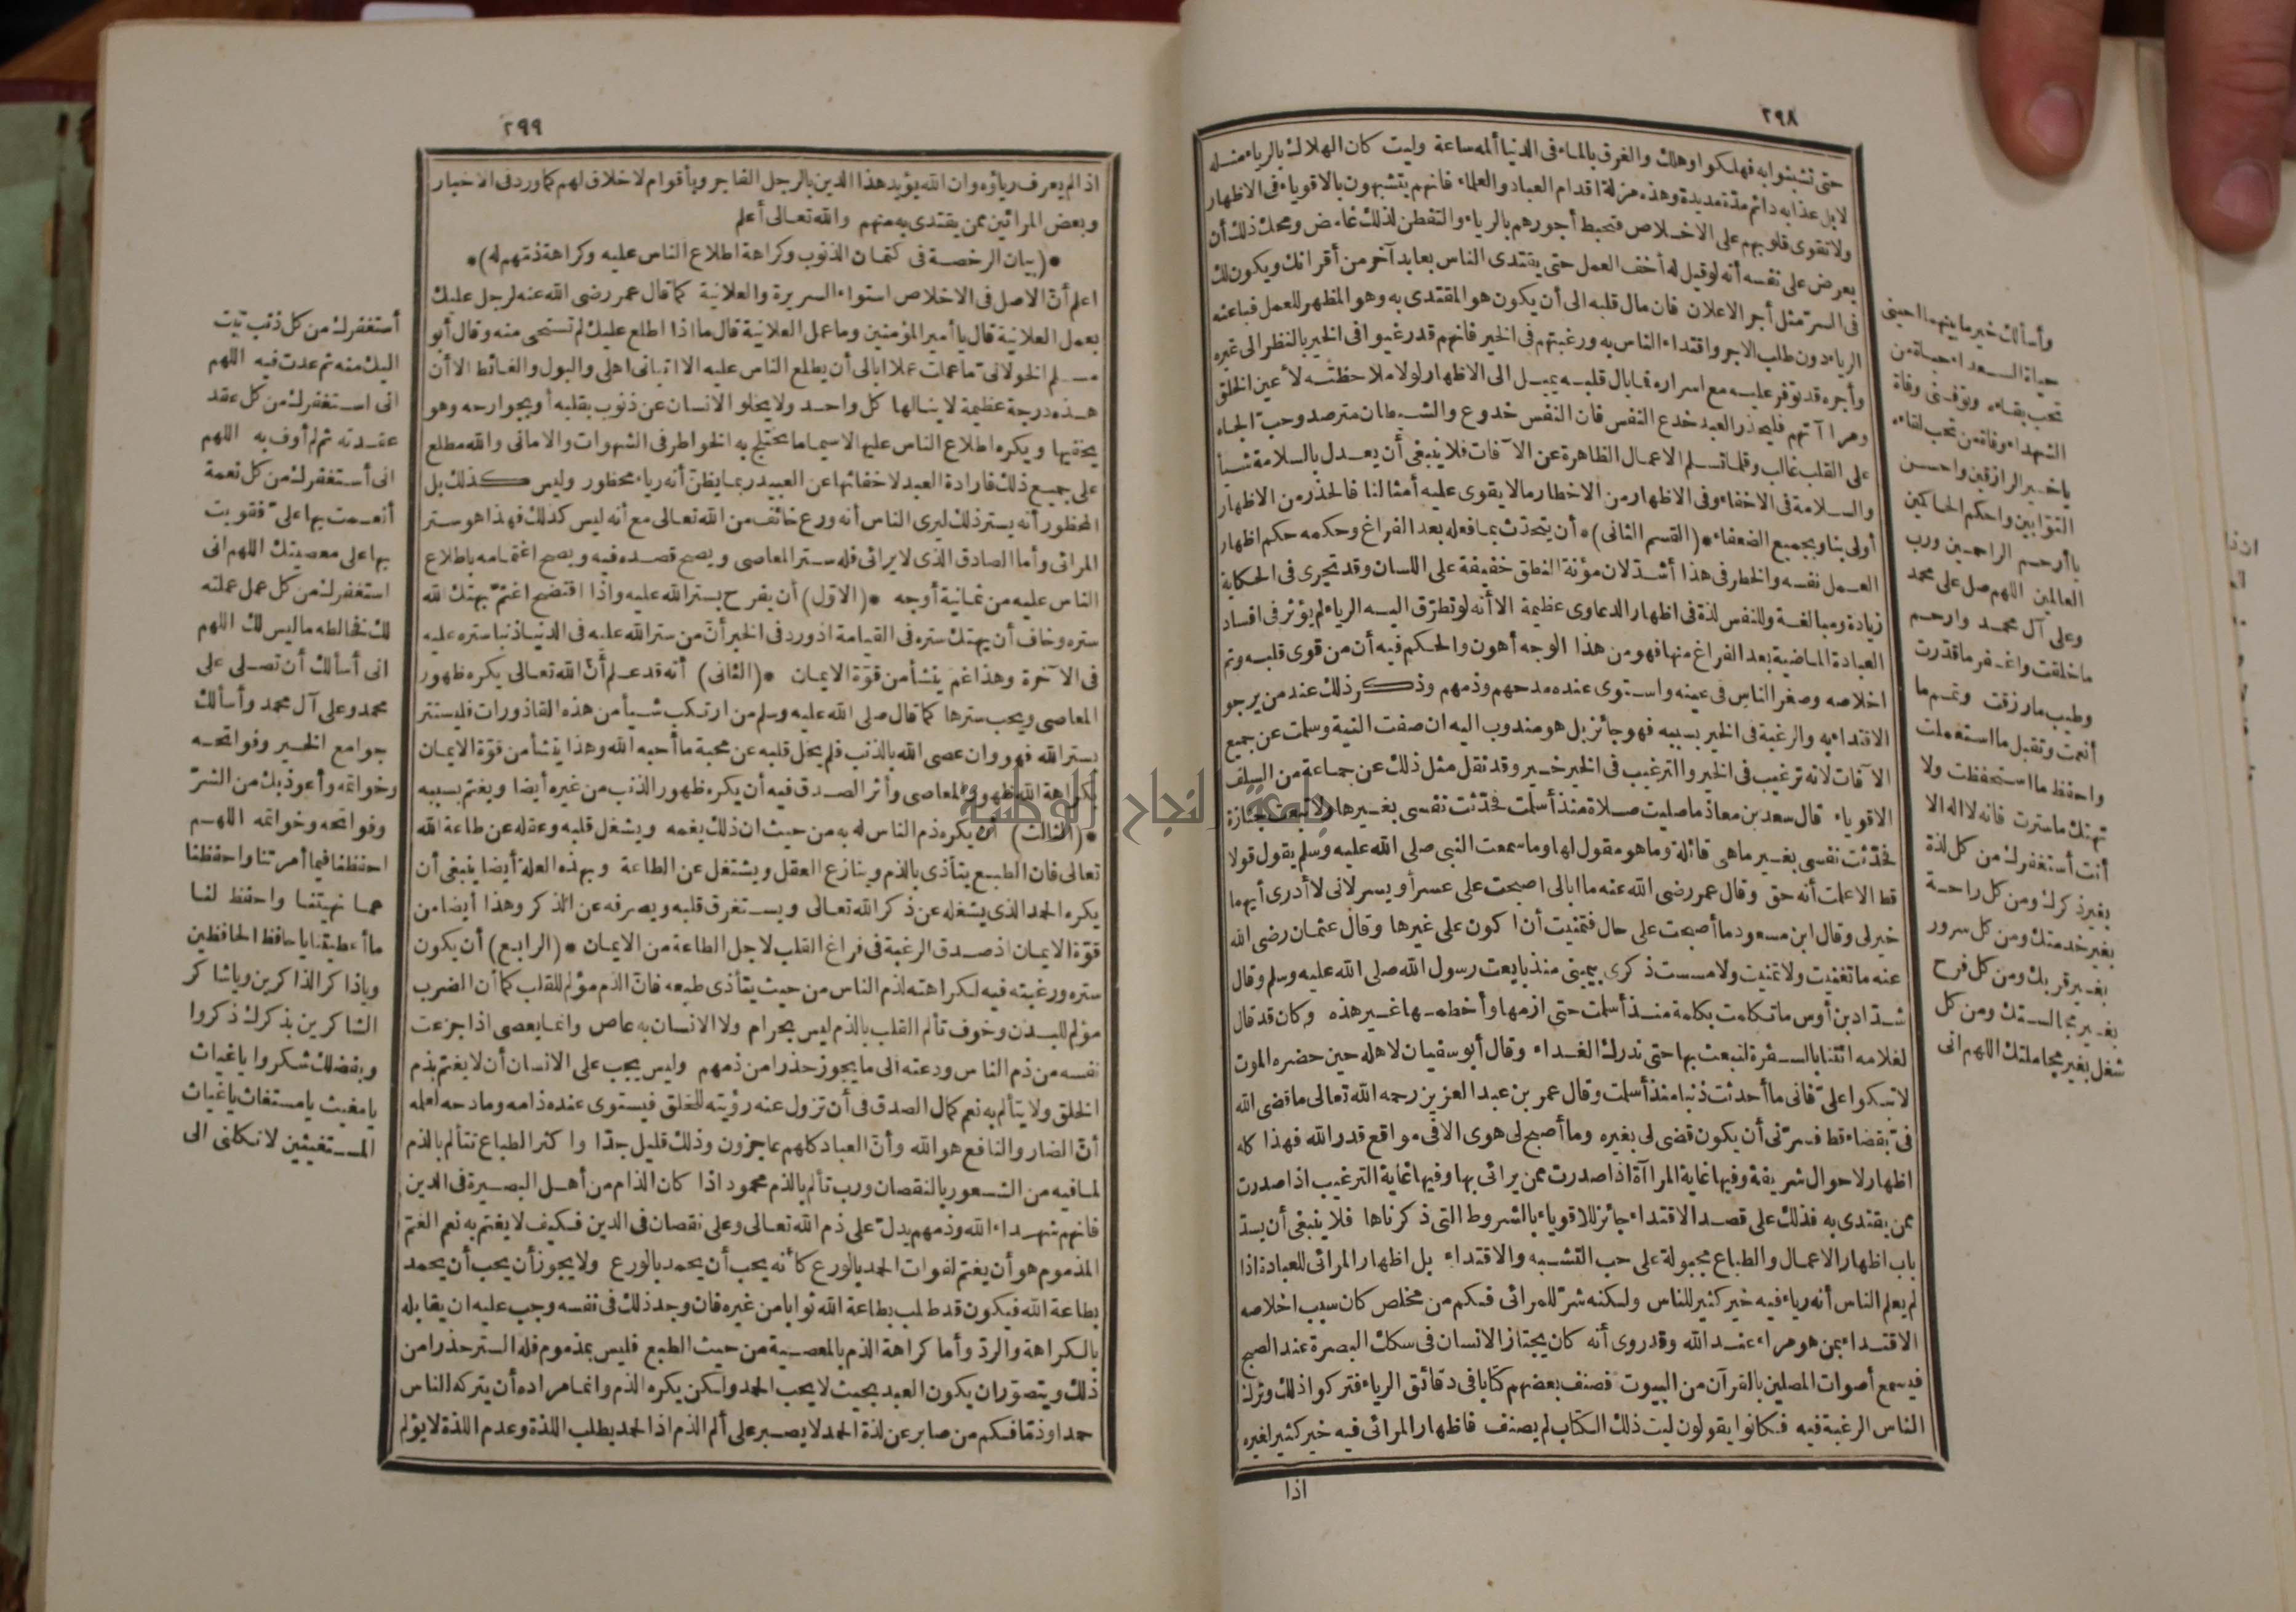 ٢٩٨
حتى تشبثوا به فهلكوا وهلك والغرق بالماء فى الدنيا ألمه ساعة وليت كان الهلاك بالرياء مثله
لا بل عذابه دائم مدّة مديدة وهذه مزلة اقدام العباد والعلماء فانهم يتشبهون بالاقوياء فى الاظهار
ولا تقوى قلوبهم على الاخلاص فتحبط أجورهم بالرياء والتفطن لذلك غامض ومحك ذلك أن
يعرض على نفسه أنه لو قيل له أخف العمل حتى يقتدى الناس بعابد آخر من أقرانك ويكون لك
فى السرّ مثل أجر الاعلان فان مال قلبه الى أن يكون هو المقتدى به وهو المظهر للعمل فباعثه
الرياء دون طلب الاجر واقتداء الناس به ورغبتهم فى الخير فانهم قد رغبوا فى الخير بالنظر الى غيره
وأجره قد توفر عليه مع اسراره فما بال قلبه يميل الى الاظهار لولا ملاحظته لأعين الخلق
ومرا آتهم فليحذر العبد خدع النفس فان النفس خدوع والشيطان مترصد وحب الجاه
على القلب غالب وقلما تسلم الاعمال الظاهرة عن الآفات فلا ينبغى أن يعدل بالسلامة شيأ
والسلامة فى الاخفاء وفى الاظهار من الاخطار مالا يقوى عليه أمثالنا فالحذر من الاظهار
أولى بنا وبجميع الضعفاء *(القسم الثانى)* أن يتحدّث بما فعله بعد الفراغ وحكمه حكم اظهار
العمل نفسه والخطر فى هذا أشدّ لان مؤنة النطق خفيفة على اللسان وقد تجرى فى الحكاية
زيادة ومبالغة وللنفس لذة فى اظهار الدعاوى عظيمة الا أنه لو تطرّق اليه الرياء لم يؤثر فى افساد
العبادة الماضية بعد الفراغ منها فهو من هذا الوجه أهون والحكم فيه أن من قوى قلبه وتم
اخلاصه وصغر الناس فى عينه واستوى عنده مدحهم وذمهم وذكر ذلك عند من يرجو
الاقتداء به والرغبة فى الخير بسببه فهو جائز بل هو مندوب اليه ان صفت النية وسلمت عن جميع
الآفات لانه ترغيب فى الخير والترغيب فى الخير خير وقد نقل مثل ذلك عن جماعة من السلف
الاقوياء قال سعد بن معاذ ما صليت صلاة منذ أسلمت فحدّثت نفسى بغيرها ولا تبعت جنازة
فحدّثت نفسى بغير ما هى قائلة وما هو مقول لها وما سمعت النبى صلى الله عليه وسلم يقول قولا
قط الا علمت أنه حق وقال عمر رضى الله عنه ما ابالى اصبحت على عسر أو يسر لانى لا أدرى أيهما
خير لى وقال ابن مسعود ما أصبحت على حال فتمنيت أن اكون على غيرها وقال عثمان رضى الله
عنه ما تغنيت ولا تمنيت ولا مسست ذكرى بيمينى منذ بايعت رسول الله صلى الله عليه وسلم وقال
شدّاد بن أوس ما تكلمت بكلمة منذ أسلمت حتى ازمها وأخطمها غير هذه وكان قد قال
لغلامه ائتنا بالسفرة لنبعث بها حتى ندرك الغداء وقال أبو سفيان لاهله حين حضره الموت
لا تبكوا علىّ فانى ما أحدثت ذنبا منذ أسلمت وقال عمر بن عبد العزيز رحمه الله تعالى ما قضى الله
فىّ بقضاء قط فسرّنى أن يكون قضى لى بغيره وما أصبح لى هوى الا فى مواقع قدر الله فهذا كله
اظهار لاحوال شريفة وفيها غاية المراآة اذا صدرت ممن يرائى بها وفيها غاية الترغيب اذا صدرت
ممن يقتدى به فذلك على قصد الاقتداء جائز للاقوياء بالشروط التى ذكرناها فلا ينبغى أن يسدّ
باب اظهار الاعمال والطباع مجبولة على حب التشبه والاقتداء بل اظهار المرائى للعبادة اذا
لم يعلم الناس أنه رياء فيه خير كثير للناس ولكنه شرّ للمرائى فكم من مخلص كان سبب اخلاصه
الاقتداء بمن هو مراء عند الله وقد روى أنه كان يجتاز الانسان فى سكك البصرة عند الصبح
فيسمع أصوات المصلين بالقرآن من البيوت فصنف بعضهم كتابا فى دقائق الرياء فتركوا ذلك وترك
الناس الرغبة فيه فكانوا يقولون ليت ذلك الكتاب لم يصنف فاظهار المرائى فيه خير كثير لغيره
اذا
وأسألك خير ما بينهما احينى
حياة السعداء حياة من
تحب بقاءه وتوفنى وفاة
الشهداء وفاة من تحب لقاءه
يا خير الرازقين واحسن
التوّابين واحكم الحاكمين
يا أرحم الراحمين ورب
العالمين اللهم صل على محمد
وعلى آل محمد وارحم
ما خلقت واغفر ما قدّرت
وطيب ما رزقت وتمم ما
أنعمت وتقبل ما استعملت
واحفظ ما استحفظت ولا
تهتك ما سترت فانه لا اله الا
أنت أستغفرك من كل لذة
بغير ذكرك ومن كل راحة
بغير خدمتك ومن كل سرور
بغير قربك ومن كل فرح
بغير مجالستك ومن كل
شغل بغير معاملتك اللهم انى
٢٩٩
اذا لم يعرف رياؤه وان الله يؤيد هذا الدين بالرجل الفاجر وبأقوام لا خلاق لهم كما ورد فى الاخبار
وبعض المرائين ممن يقتدى به منهم والله تعالى أعلم
*(بيان الرخصة فى كتمان الذنوب وكراهة اطلاع الناس عليه وكراهة ذمهم له)*
اعلم أنّ الاصل فى الاخلاص استواء السريرة والعلانية كما قال عمر رضى الله عنه لرجل عليك
بعمل العلانية قال يا أمير المؤمنين وما عمل العلانية قال ما اذا اطلع عليك لم تستحى منه وقال أبو
مسلم الخولانى ما عملت عملا ابالى أن يطلع الناس عليه الا اتيانى اهلى والبول والغائط الا أن
هذه درجة عظيمة لا ينالها كل واحد ولا يخلو الانسان عن ذنوب بقلبه أو بجوارحه وهو
يخفيها ويكره اطلاع الناس عليها لاسيما ما يختلج به الخواطر فى الشهوات والامانى والله مطلع
على جميع ذلك فارادة العبد لاخفائها عن العبيد ربما يظنّ أنه رياء محظور وليس كذلك بل
المحظور أنه يستر ذلك ليرى الناس أنه ورع خائف من الله تعالى مع أنه ليس كذلك فهذا هو ستر
المرائى وأما الصادق الذى لا يرائى فله ستر المعاصى ويصح قصده فيه ويصح اغتمامه باطلاع
الناس عليه من ثمانية أوجه *(الاوّل) أن يفرح بستر الله عليه واذا افتضح اغتمّ بهتك الله
ستره وخاف أن يهتك ستره فى القيامة اذ ورد فى الخبر أنّ من ستر الله عليه فى الدنيا ذنبا ستره عليه
فى الآخرة وهذا غم ينشأ من قوّة الايمان *(الثانى) أنه قد علم أنّ الله تعالى يكره ظهور
المعاصى ويحب سترها كما قال صلى الله عليه وسلم من ارتكب شيأ من هذه القاذورات فليستتر
بستر الله فهو وان عصى الله بالذنب فلم يخل قلبه عن محبة ما أحبه الله وهذا ينشأ من قوّة الايمان
بكراهة الله ظهور المعاصى وأثر الصدق فيه أن يكره ظهور الذنب من غيره أيضا ويغتم بسببه
*(الثالث) أن يكره ذم الناس له به من حيث ان ذلك يغمه ويشغل قلبه وعقله عن طاعة الله
تعالى فان الطبع يتأذى بالذم وينازع العقل ويشتغل عن الطاعة وبهذه العلة أيضا ينبغى أن
يكره الحمد الذى يشغله عن ذكر الله تعالى ويستغرق قلبه ويصرفه عن الذكر وهذا أيضا من
قوّة الايمان اذ صدق الرغبة فى فراغ القلب لاجل الطاعة من الايمان *(الرابع) أن يكون
ستره ورغبته فيه لكراهته لذم الناس من حيث يتأذى طبعه فانّ الذم مؤلم للقلب كما أن الضرب
مؤلم للبدن وخوف تألم القلب بالذم ليس بحرام ولا الانسان به عاص وانما يعصى اذا جزعت
نفسه من ذم الناس ودعته الى ما يجوز حذرا من ذمهم وليس يجب على الانسان أن لا يغتم بذم
الخلق ولا يتألم به نعم كمال الصدق فى أن تزول عنه رؤيته للخلق فيستوى عنده ذامه ومادحه لعلمه
أنّ الضار والنافع هو الله وأنّ العباد كلهم عاجزون وذلك قليل جدّا واكثر الطباع تتألم بالذم
لما فيه من الشعور بالنقصان ورب تألم بالذم محمود اذا كان الذام من أهل البصيرة فى الدين
فانهم شهداء الله وذمهم يدلّ على ذم الله تعالى وعلى نقصان فى الدين فكيف لا يغتم به نعم الغتم
المذموم هو أن يغتم لفوات الحمد بالورع كأنه يحب أن يحمد بالورع ولا يجوز أن يحب أن يحمد
بطاعة الله فيكون قد طلب بطاعة الله ثوابا من غيره فان وجد ذلك فى نفسه وجب عليه ان يقابله
بالكراهة والردّ وأما كراهة الذم بالمعصية من حيث الطبع فليس بمذموم فله الستر حذرا من
ذلك ويتصوّر ان يكون العبد بحيث لا يحب الحمد ولكن يكره الذم وانما مراده أن يتركه الناس
حمدا وذمّا فكم من صابر عن لذة الحمد لا يصبر على ألم الذم اذ الحمد يطلب اللذة وعدم اللذة لا يؤلم
أستغفرك من كل ذنب تبت
اليك منه ثم عدت فيه اللهم
انى استغفرك من كل عقد
عقدته ثم لم أوف به اللهم
انى أستغفرك من كل نعمة
أنعمت بها علىّ فقويت
بها على معصيتك اللهم انى
استغفرك من كل عمل عملته
لك فخالطه ما ليس لك اللهم
انى أسألك أن تصلى على
محمد وعلى آل محمد وأسألك
جوامع الخير وفواتحه
وخواتمه وأعوذ بك من الشرّ
وفواتحه وخواتمه اللهم
احفظنا فيما أمرتنا واحفظنا
عما نهيتنا واحفظ لنا
ما أعطيتنا يا حافظ الحافظين
ويا ذاكر الذاكرين ويا شاكر
الشاكرين بذكرك ذكروا
وبفضلك شكروا يا غياث
يا مغيث يا مستغاث يا غياث
المستغيثين لا تكلنى الى
جامعة النجاح الوطنية